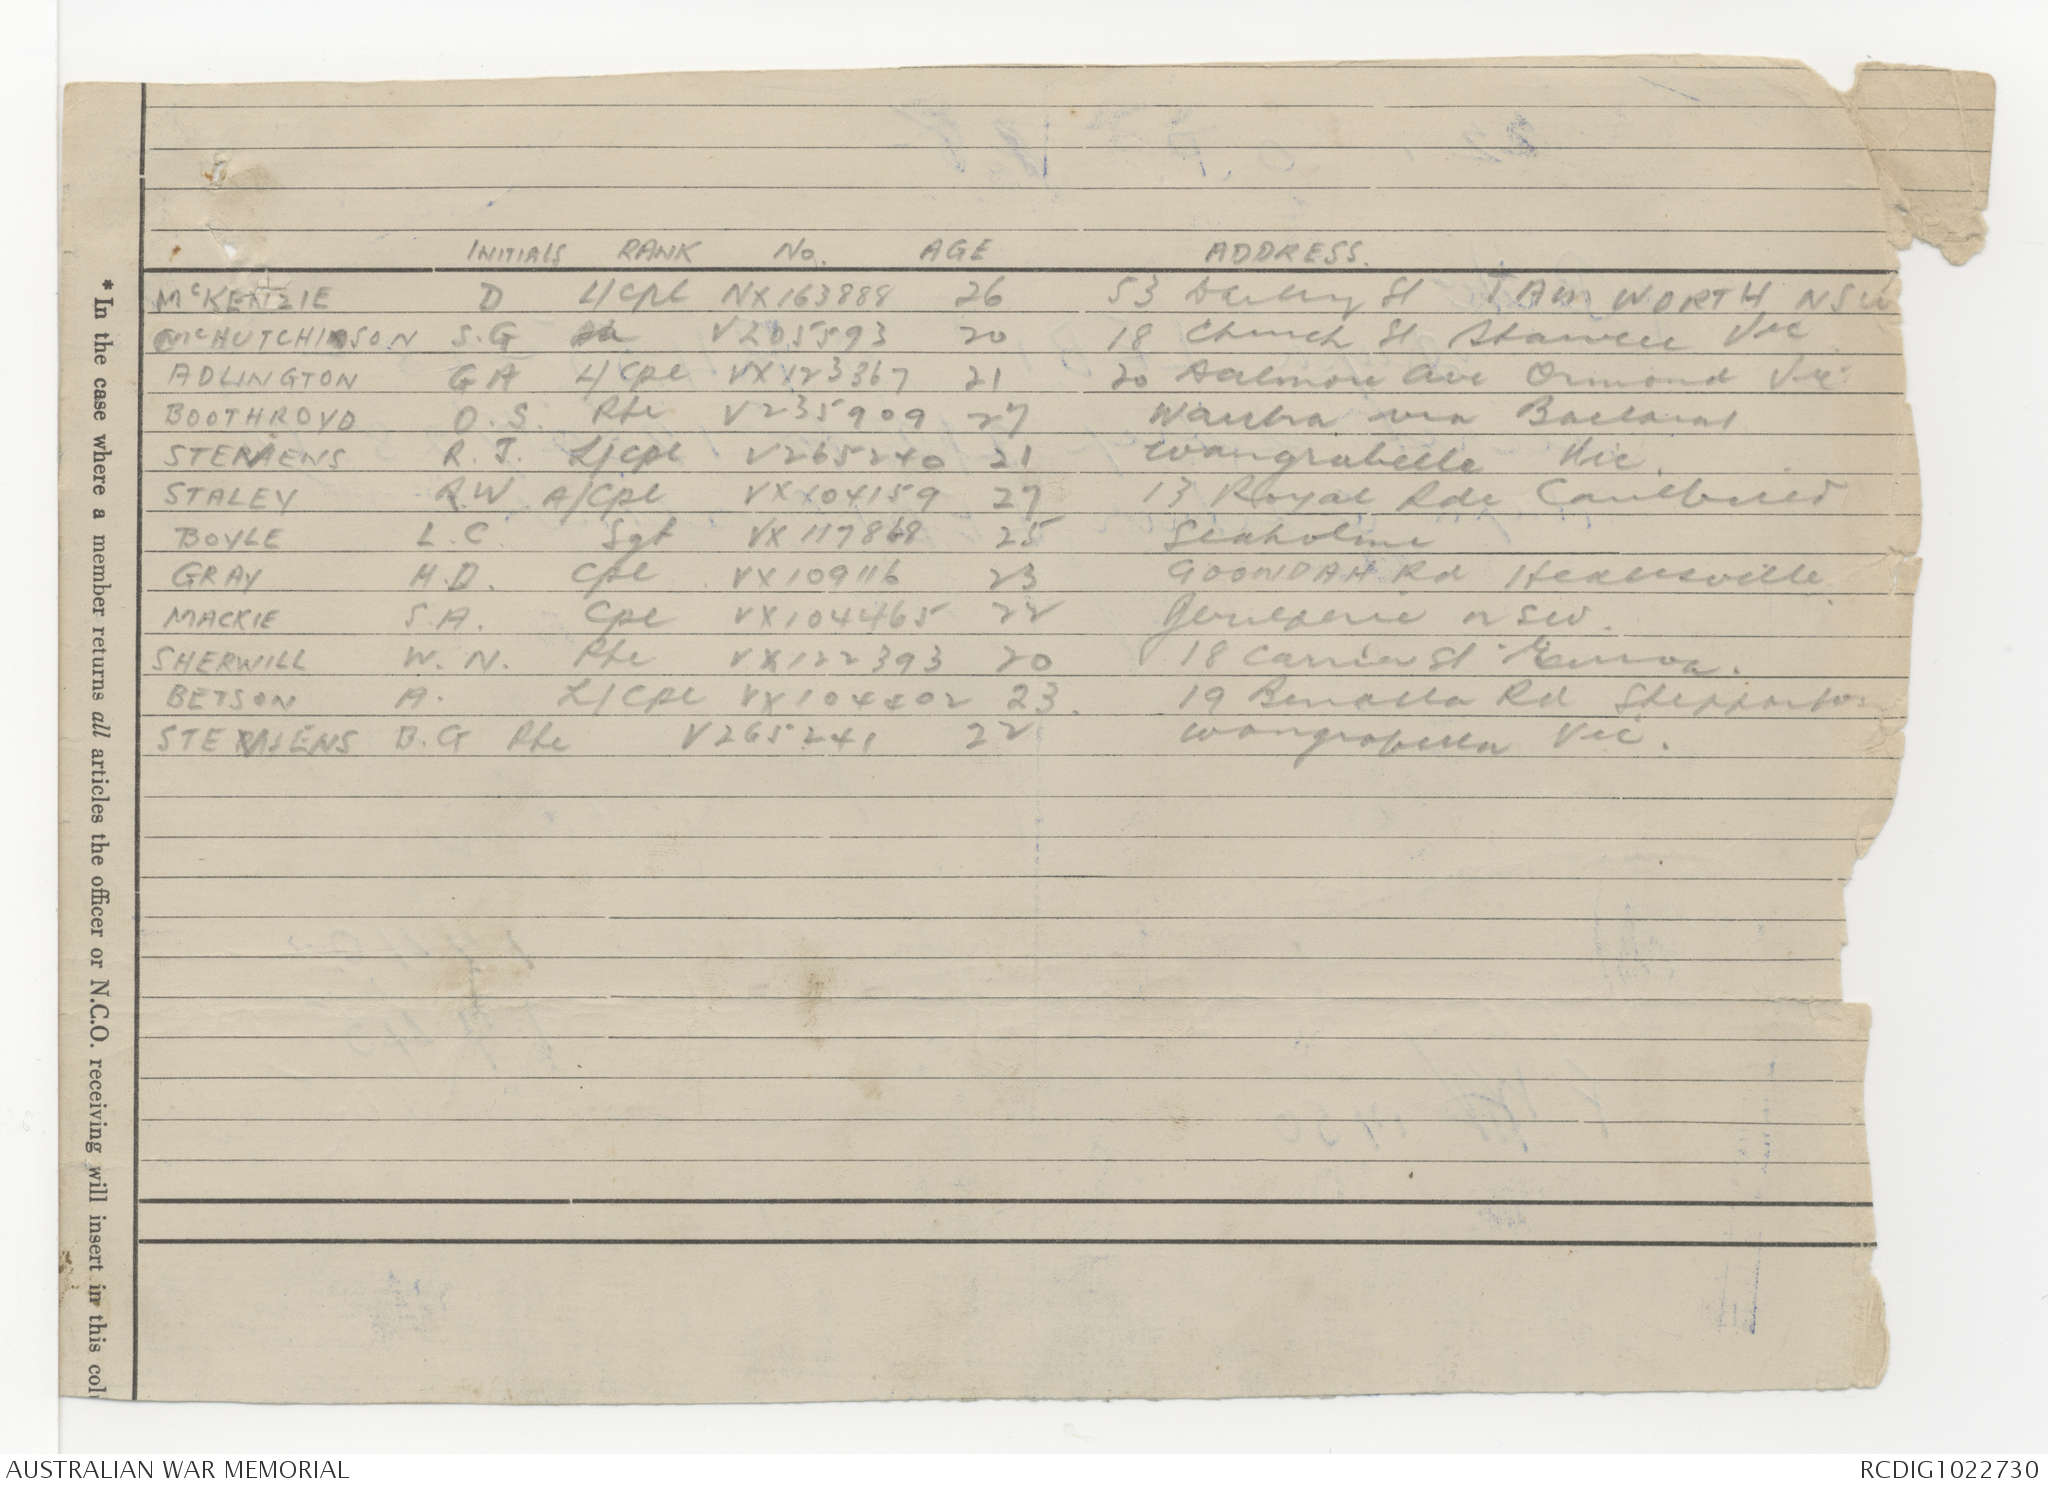 INITIALS RANK No. AGE ADDRESS.
McKENZIE D L/Cpl NX163888 26 53 St TAMWORTH NSW
McHUTCHINSON S.G V205593 20 18 Church St Stawell Vic
ADLINGTON G A L/Cpl VX123367 21 20 Dalmore Ave Ormond Vic
BOOTHROYD O.S. Pte V235909 27 Waubra via Ballarat
R.J. L/Cpl V265240 21 Wangrabelle Vic.
STALEY R.W A/Cpl VX104159 27 13 Royal Pde Caulfield
BOYLE L.C. Sgt VX117868 25 Seaholme
GRAY H.D. Cpl VX109116 23 GOONDAH Rd Healesville.
MACKIE S.A. Cpl VX104465 22 Jerilderie NSW.
SHERWILL W.N. Pte VX122393 20 18 Carrier St
BETSON A. L/Cpl VX104402 23. 19 Benalla Rd Shepparton
B.G Pte V265241 22 Wangrabella Vic.
* In the case where a member returns all articles the officer or N.C.O. receiving will insert in this colu
AUSTRALIAN WAR MEMORIAL RCDIG1022730